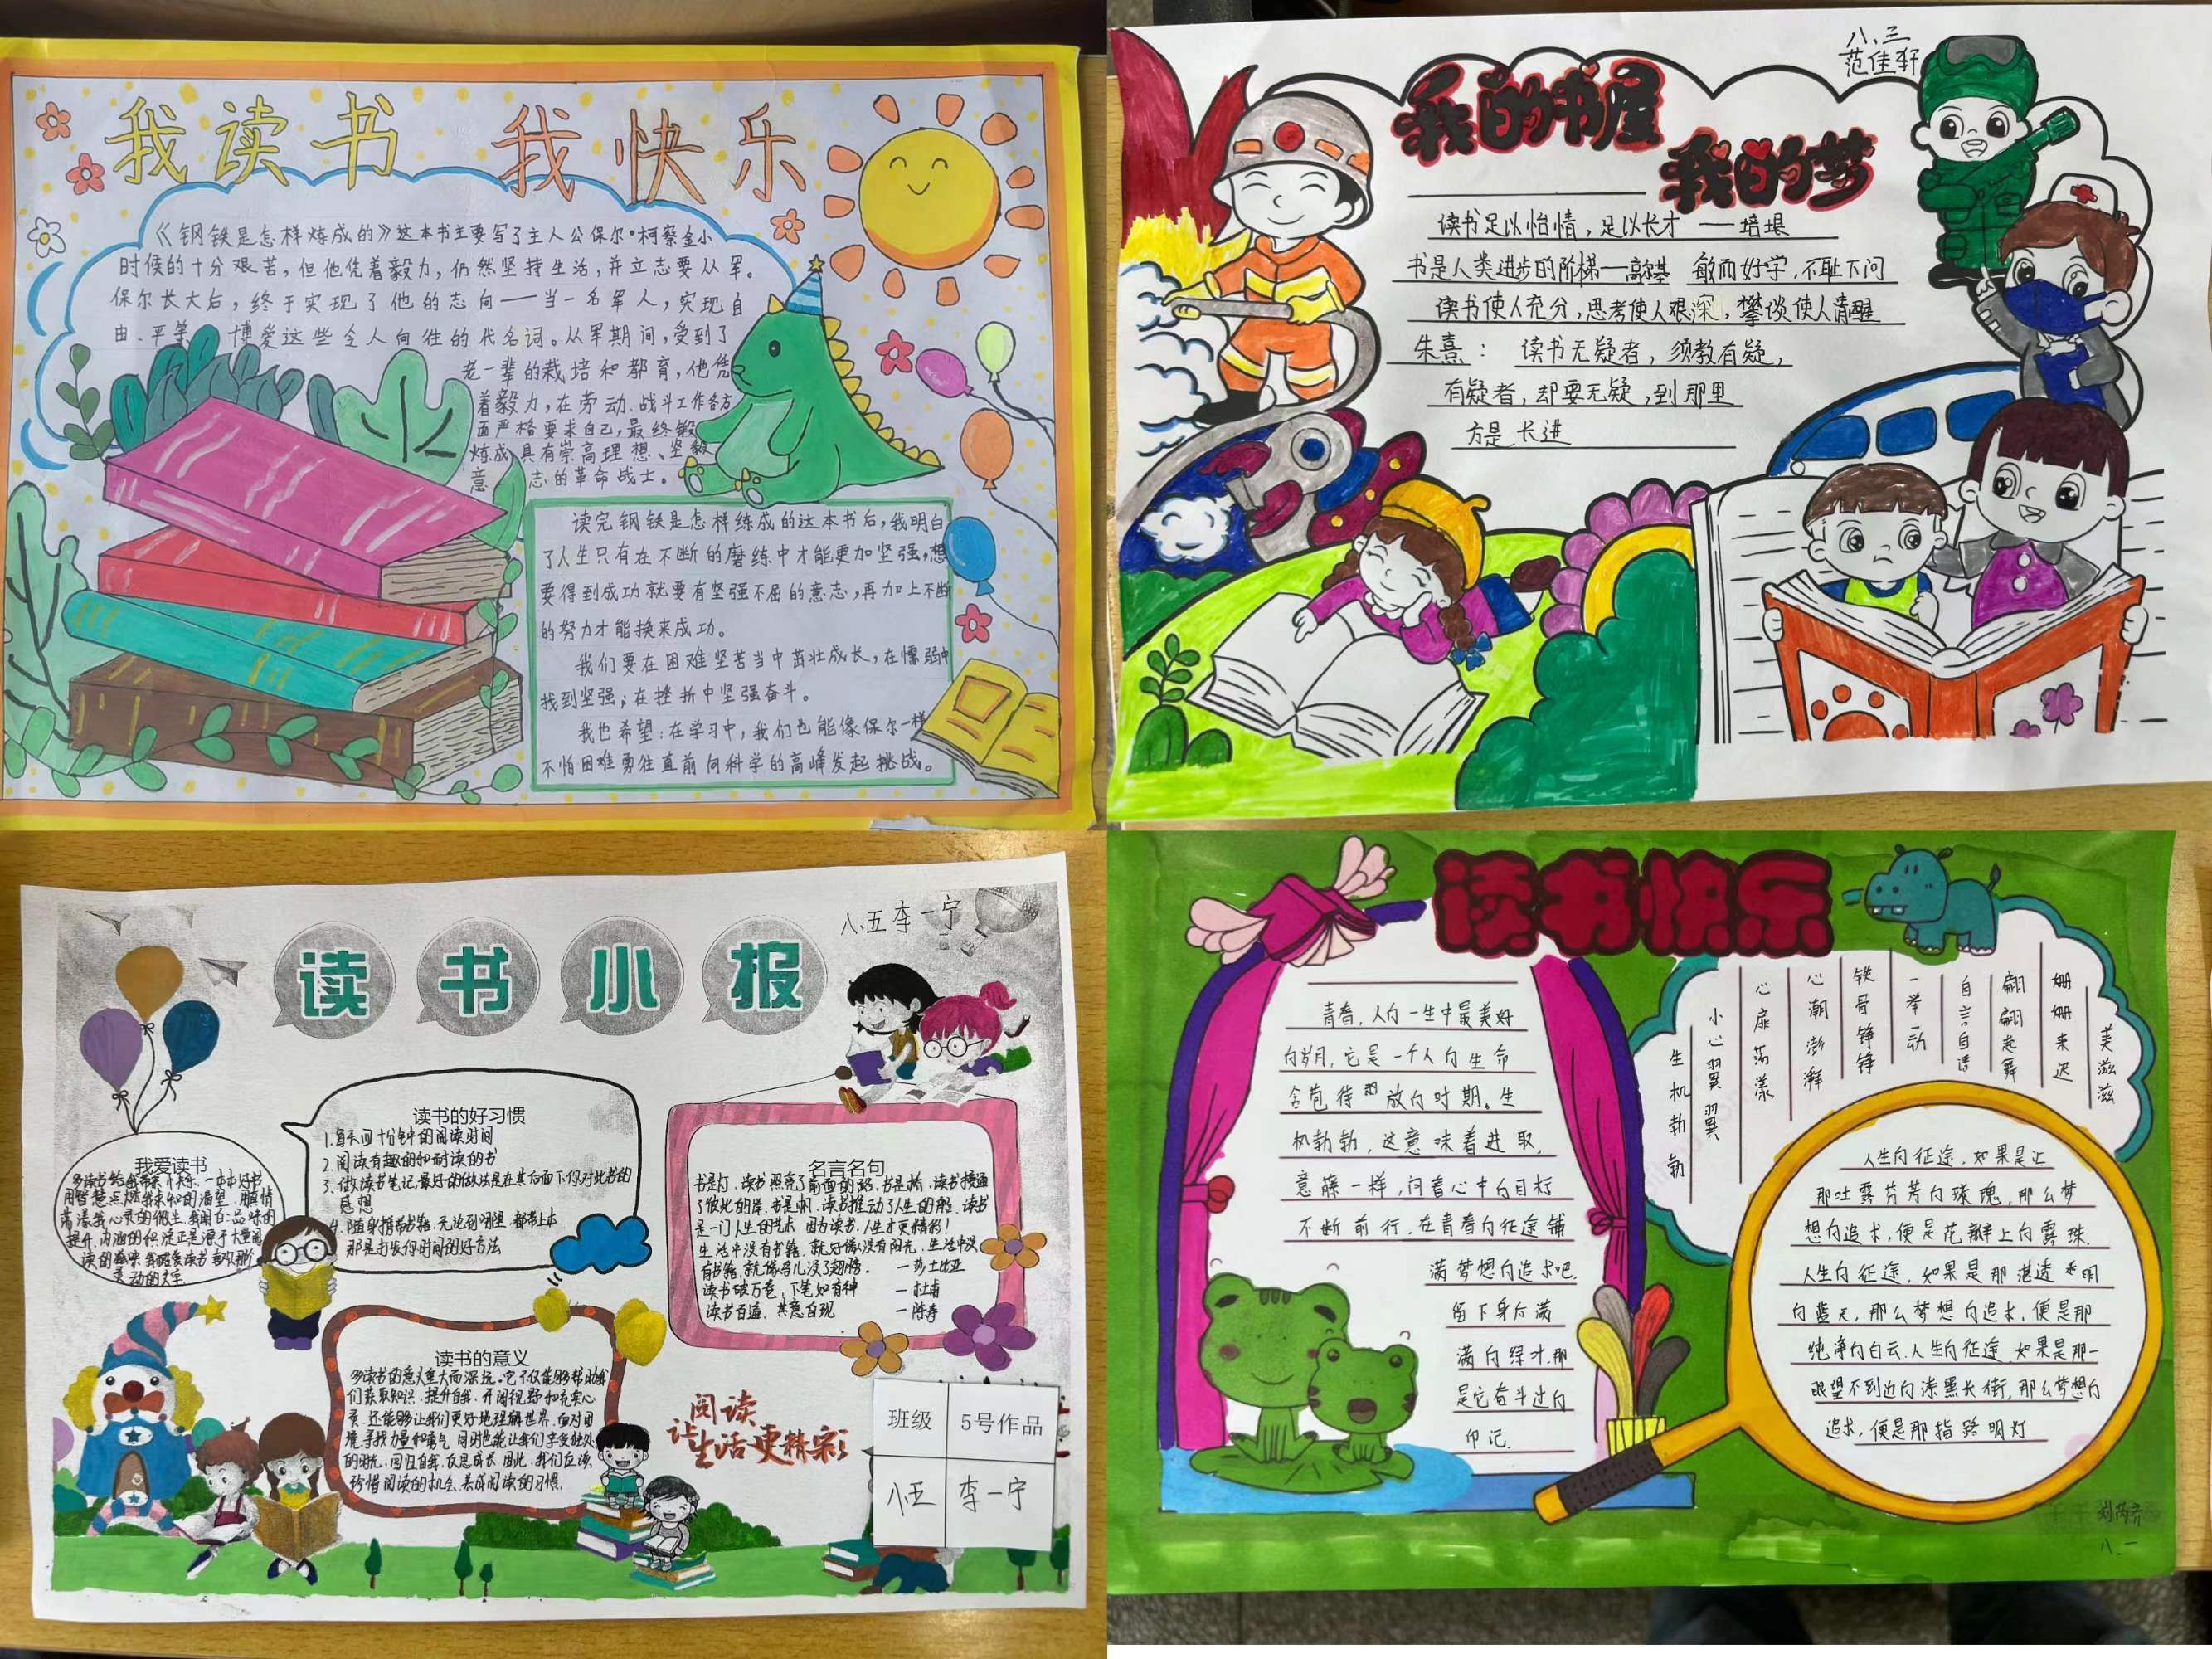 我读书 我快乐
《钢铁是怎样炼成的》这本书主要写了主人公保尔·柯察金小
时候的十分艰苦，但他凭着毅力，仍然坚持生活，并立志要从军。
保尔长大后，终于实现了他的志向——当一名军人，实现自
由、平等、博爱这些令人向往的代名词。从军期间，受到了
老一辈的栽培和教育，他凭
着毅力，在劳动、战斗工作各方
面严格要求自己，最终锻
炼成具有崇高理想、坚毅
意志的革命战士。
读完钢铁是怎样练成的这本书后，我明白
了人生只有在不断的磨练中才能更加坚强，想
要得到成功就要有坚强不屈的意志，再加上不断
的努力才能换来成功。
我们要在困难坚苦当中茁壮成长，在懦弱中
找到坚强；在挫折中坚强奋斗。
我也希望：在学习中，我们也能像保尔一样
不怕困难勇往直前向科学的高峰发起挑战。
八、三
范佳轩
我的书屋
我的梦
读书足以怡情，足以长才——培垠
书是人类进步的阶梯——高尔基 敏而好学，不耻下问
读书使人充分，思考使人艰深，攀谈使人清醒
朱熹：读书无疑者，须教有疑，
有疑者，却要无疑，到那里
方是长进
八、五 李一宁
读书小报
读书的好习惯
1.每天四十分钟的阅读时间
2.阅读有趣的和耐读的书
3.做读书笔记，最好的做法是在其句面下你对此书的
感想
4.随身携带书籍，无论到哪里都带上本
那是打长你时间的好方法
我爱读书
名言名句
书是灯，读书照亮了前面的路，书是桥，读书接通
了彼此的岸，书是帆，读书推动了人生的船，读书
是一门人生的艺术，因为读书，人生才更精彩！
生活中没有书籍，就好像没有阳光，生活中没
有书籍，就像鸟儿没了翅膀。 —莎士比亚
读书破万卷，下笔如有神 —杜甫
读书百遍，其意自现 —陈寿
读书的意义
多读书的意义重大而深远。它不仅能够帮助我
们获取知识、提升自我、开阔视野和充实心
灵，还能够让我们更好地理解世界，面对困
境寻找力量和勇气，同时也能让我们享受独处
的时光，回归自我，反思成长，因此，我们应该
珍惜阅读的机会，养成阅读的习惯。
阅读
让生活更精彩
班级 5号作品
八五 李一宁
读书快乐
青春，人的一生中最美好
的岁月，它是一个人的生命
含苞待放的时期。生
机勃勃，这意味着进取，
意藤一样，向着心中的目标
不断前行，在青春的征途铺
满梦想的追求吧，
留下身后满
满的绿才，那
是它奋斗过的
印记.
生机勃勃
小心翼翼
心扉荡漾
心潮澎湃
铁骨铮铮
一举一动
自言自语
翩翩起舞
姗姗来迟
美滋滋
人生的征途，如果是让
那吐露芬芳的玫瑰，那么梦
想的追求，便是花瓣上的露珠.
人生的征途，如果是那湛透光明
的蓝天，那么梦想的追求，便是那
纯净的白云.人生的征途，如果是那一
眼望不到边的漆黑长街，那么梦想的
追求，便是那指路明灯
八.一